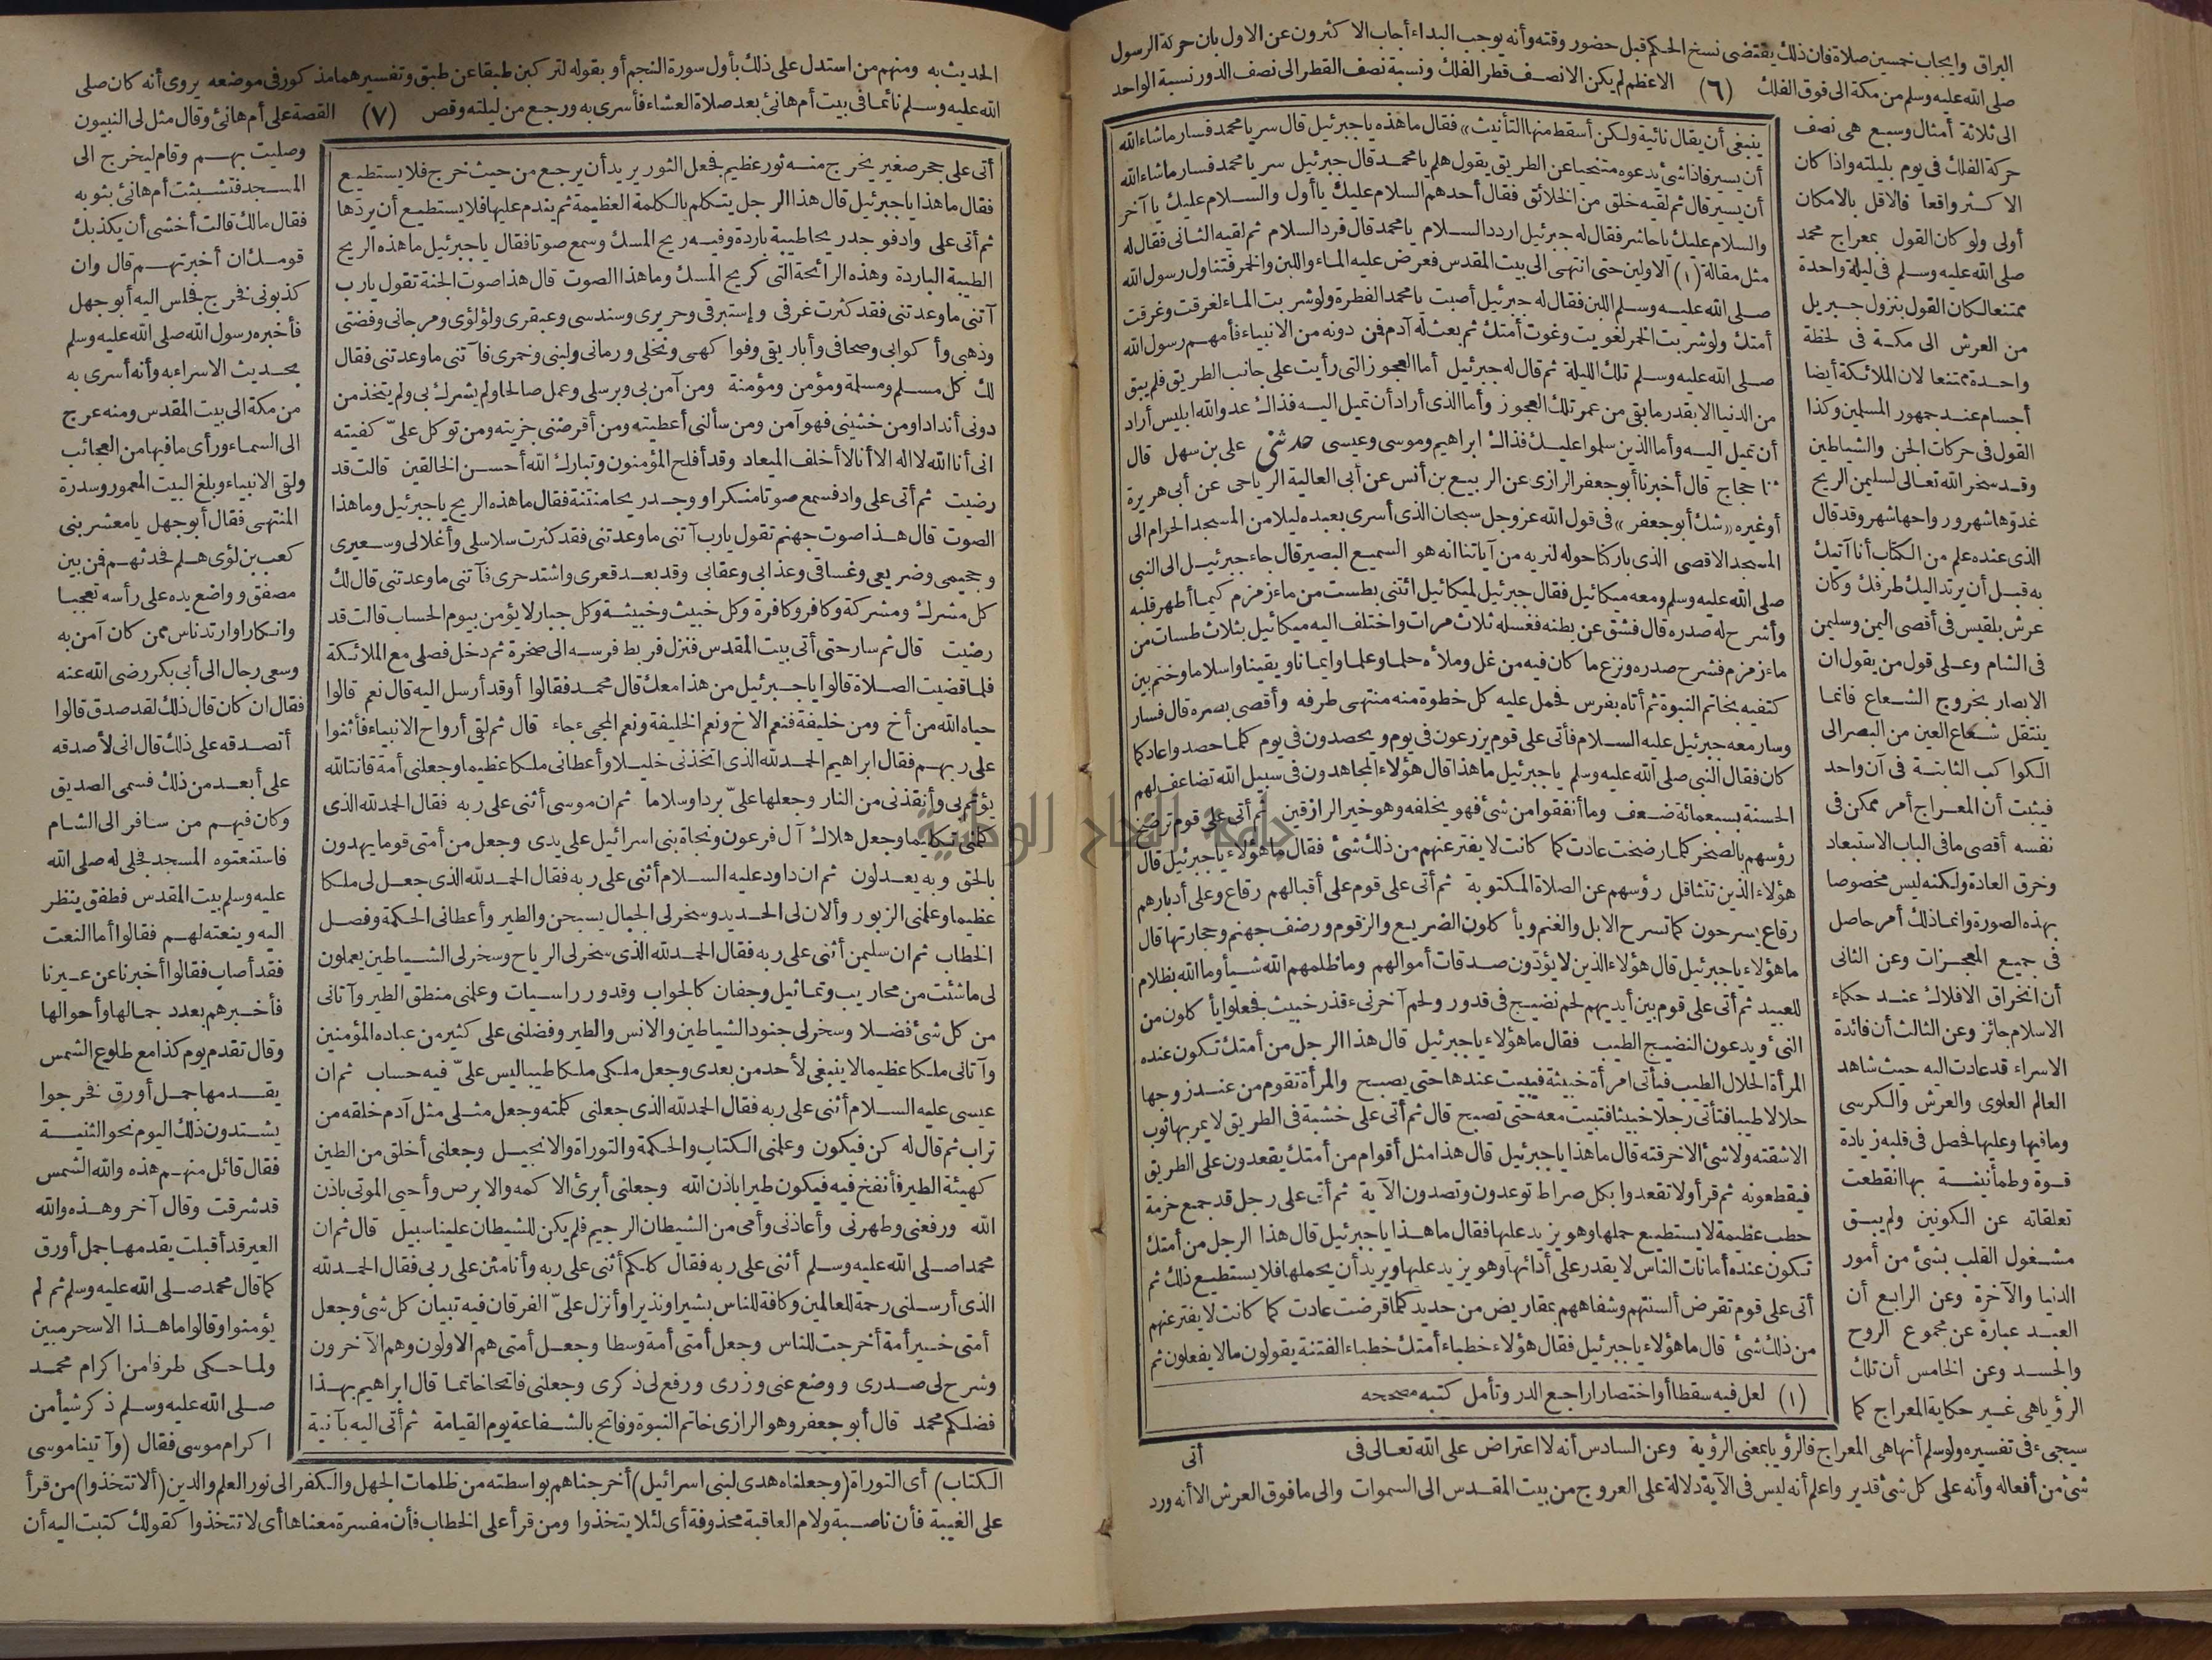 البراق وايجاب خمسين صلاة فان ذلك يقتضى نسخ الحكم قبل حضور وقته وأنه يوجب البداء أجاب الاكثرون عن الاول بان حركة الرسول
صلى الله عليه وسلم من مكة الى فوق الفلك (٦) الاعظم لم يكن الانصف قطر الفلك ونسبة نصف القطر الى نصف الدور نسبة الواحد
الى ثلاثة أمثال وسبع هى نصف
حركة الفلك فى يوم بليلته واذا كان
الاكثر واقعا فالاقل بالامكان
أولى ولو كان القول بمعراج محمد
صلى الله عليه وسلم فى ليلة واحدة
ممتنعا لكان القول بنزول جبريل
من العرش الى مكة فى لحظة
واحدة ممتنعا لان الملائكة أيضا
أجسام عند جمهور المسلمين وكذا
القول فى حركات الجن والشياطين
وقد سخر الله تعالى لسليمن الريح
غدوها شهر ورواحها شهر وقد قال
الذى عنده علم من الكتاب أنا آتيك
به قبل أن يرتد اليك طرفك وكان
عرش بلقيس فى أقصى اليمن وسليمن
فى الشام وعلى قول من يقول ان
الابصار بخروج الشعاع فانما
ينتقل شعاع العين من البصر الى
الكواكب الثابتة فى آن واحد
فيثبت أن المعراج أمر ممكن فى
نفسه أقصى ما فى الباب الاستبعاد
وخرق العادة ولكنه ليس مخصوصا
بهذه الصورة وانما ذلك أمر حاصل
فى جميع المعجزات وعن الثانى
أن انخراق الافلاك عند حكماء
الاسلام جائز وعن الثالث أن فائدة
الاسراء قد عادت اليه حيث شاهد
العالم العلوى والعرش والكرسى
وما فيها وعليها فحصل فى قلبه زيادة
قوة وطمأنينة بها انقطعت
تعلقاته عن الكونين ولم يبق
مشغول القلب بشئ من أمور
الدنيا والآخرة وعن الرابع أن
العبد عبارة عن مجموع الروح
والجسد وعن الخامس أن تلك
الرؤيا هى غير حكاية المعراج كما
سيجىء فى تفسيره ولو سلم أنها هى المعراج فالرؤيا بمعنى الرؤية وعن السادس أنه لا اعتراض على الله تعالى فى
شئ من أفعاله وأنه على كل شئ قدير واعلم أنه ليس فى الآية دلالة على العروج من بيت المقدس الى السموات والى ما فوق العرش الا أنه ورد
ينبغى أن يقال نائية ولكن أسقط منها التأنيث» فقال ما هذه يا جبرئيل قال سر يا محمد فسار ما شاء الله
أن يسير فاذا شئ يدعوه متنحيا عن الطريق يقول هلم يا محمد قال جبرئيل سر يا محمد فسار ما شاء الله
أن يسير قال ثم لقيه خلق من الخلائق فقال أحدهم السلام عليك يا أول والسلام عليك يا آخر
والسلام عليك يا حاشر فقال له جبرئيل اردد السلام يا محمد قال فرد السلام ثم لقيه الثانى فقال له
مثل مقالة (١) الاولين حتى انتهى الى بيت المقدس فعرض عليه الماء واللبن والخمر فتناول رسول الله
صلى الله عليه وسلم اللبن فقال له جبرئيل أصبت يا محمد الفطرة ولو شربت الماء لغرقت وغرقت
أمتك ولو شربت الخمر لغويت وغوت أمتك ثم بعث له آدم فمن دونه من الانبياء فأمهم رسول الله
صلى الله عليه وسلم تلك الليلة ثم قال له جبرئيل أما العجوز التى رأيت على جانب الطريق فلم يبق
من الدنيا الا بقدر ما بقى من عمر تلك العجوز وأما الذى أراد أن تميل اليه فذاك عدو الله ابليس أراد
أن تميل اليه وأما الذين سلموا عليك فذاك ابراهيم وموسى وعيسى حدثنى على بن سهل قال
ثنا حجاج قال أخبرنا أبو جعفر الرازى عن الربيع بن أنس عن أبى العالية الرياحى عن أبى هريرة
أو غيره «شك أبو جعفر» فى قول الله عز وجل سبحان الذى أسرى بعبده ليلا من المسجد الحرام الى
المسجد الاقصى الذى باركنا حوله لنريه من آياتنا انه هو السميع البصير قال جاء جبرئيل الى النبى
صلى الله عليه وسلم ومعه ميكائيل فقال جبرئيل لميكائيل ائتنى بطست من ماء زمزم كيما أطهر قلبه
وأشرح له صدره قال فشق عن بطنه فغسله ثلاث مرات واختلف اليه ميكائيل بثلاث طسات من
ماء زمزم فشرح صدره ونزع ما كان فيه من غل وملأه حلما وعلما وايمانا ويقينا واسلاما وختم بين
كتفيه بخاتم النبوة ثم أتاه بفرس فحمل عليه كل خطوة منه منتهى طرفه وأقصى بصره قال فسار
وسار معه جبرئيل عليه السلام فأتى على قوم يزرعون فى يوم ويحصدون فى يوم كلما حصدوا عاد كما
كان فقال النبى صلى الله عليه وسلم يا جبرئيل ما هذا قال هؤلاء المجاهدون فى سبيل الله تضاعف لهم
الحسنة بسبعمائة ضعف وما أنفقوا من شئ فهو يخلفه وهو خير الرازقين ثم أتى على قوم ترضخ
رؤسهم بالصخر كلما رضخت عادت كما كانت لا يفتر عنهم من ذلك شئ فقال ما هؤلاء يا جبرئيل قال
هؤلاء الذين تتثاقل رؤسهم عن الصلاة المكتوبة ثم أتى على قوم على أقبالهم رقاع وعلى أدبارهم
رقاع يسرحون كما تسرح الابل والغنم ويأكلون الضريع والزقوم ورضف جهنم وحجارتها قال
ما هؤلاء يا جبرئيل قال هؤلاء الذين لا يؤدون صدقات أموالهم وما ظلمهم الله شيأ وما الله بظلام
للعبيد ثم أتى على قوم بين أيديهم لحم نضيج فى قدور ولحم آخر نىء قذر خبيث فجعلوا يأكلون من
النىء ويدعون النضيج الطيب فقال ما هؤلاء يا جبرئيل قال هذا الرجل من أمتك تكون عنده
المرأة الحلال الطيب فيأتى امرأة خبيثة فيبيت عندها حتى يصبح والمرأة تقوم من عند زوجها
حلالا طيبا فتأتى رجلا خبيثا فتبيت معه حتى تصبح قال ثم أتى على خشبة فى الطريق لا يمر بها ثوب
الا شقته ولا شئ الا خرقته قال ما هذا يا جبرئيل قال هذا مثل أقوام من أمتك يقعدون على الطريق
فيقطعونه ثم قرأ ولا تقعدوا بكل صراط توعدون وتصدون الآية ثم أتى على رجل قد جمع حزمة
حطب عظيمة لا يستطيع حملها وهو يزيد عليها فقال ما هذا يا جبرئيل قال هذا الرجل من أمتك
تكون عنده أمانات الناس لا يقدر على أدائها وهو يزيد عليها ويريد أن يحملها فلا يستطيع ذلك ثم
أتى على قوم تقرض ألسنتهم وشفاههم بمقاريض من حديد كلما قرضت عادت كما كانت لا يفتر عنهم
من ذلك شئ قال ما هؤلاء يا جبرئيل فقال هؤلاء خطباء أمتك خطباء الفتنة يقولون ما لا يفعلون ثم
(١) لعل فيه سقطا أو اختصارا راجع الدر وتأمل كتبه مصححه
أتى
الحديث به ومنهم من استدل على ذلك بأول سورة النجم أو بقوله لتركبن طبقا عن طبق وتفسيرهما مذكور فى موضعه يروى أنه كان صلى
الله عليه وسلم نائما فى بيت أم هانئ بعد صلاة العشاء فأسرى به ورجع من ليلته وقص (٧) القصة على أم هانئ وقال مثل لى النبيون
وصليت بهم وقام ليخرج الى
المسجد فتشبثت أم هانئ بثوبه
فقال مالك قالت أخشى أن يكذبك
قومك ان أخبرتهم قال وان
كذبونى فخرج فجلس اليه أبو جهل
فأخبره رسول الله صلى الله عليه وسلم
بحديث الاسراء به وأنه أسرى به
من مكة الى بيت المقدس ومنه عرج
الى السماء ورأى ما فيها من العجائب
ولقى الانبياء وبلغ البيت المعمور وسدرة
المنتهى فقال أبو جهل يا معشر بنى
كعب بن لؤى هلم فحدثهم فمن بين
مصفق وواضع يده على رأسه تعجبا
وانكارا وارتد ناس ممن كان آمن به
وسعى رجال الى أبى بكر رضى الله عنه
فقال ان كان قال ذلك لقد صدق قالوا
أتصدقه على ذلك قال انى لأصدقه
على أبعد من ذلك فسمى الصديق
وكان فيهم من سافر الى الشام
فاستنعتوه المسجد فجلى له صلى الله
عليه وسلم بيت المقدس فطفق ينظر
اليه وينعته لهم فقالوا أما النعت
فقد أصاب فقالوا أخبرنا عن عيرنا
فأخبرهم بعدد جمالها وأحوالها
وقال تقدم يوم كذا مع طلوع الشمس
يقدمها جمل أورق فخرجوا
يشتدون ذلك اليوم نحو الثنية
فقال قائل منهم هذه والله الشمس
قد شرقت وقال آخر وهذه والله
العير قد أقبلت يقدمها جمل أورق
كما قال محمد صلى الله عليه وسلم ثم لم
يؤمنوا وقالوا ما هذا الا سحر مبين
ولما حكى طرفا من اكرام محمد
صلى الله عليه وسلم ذكر شيأ من
اكرام موسى فقال (وآتينا موسى
الكتاب) أى التوراة (وجعلناه هدى لبنى اسرائيل) أخرجناهم بواسطته من ظلمات الجهل والكفر الى نور العلم والدين (ألا تتخذوا) من قرأ
على الغيبة فأن ناصبة ولام العاقبة محذوفة أى لئلا يتخذوا ومن قرأ على الخطاب فأن مفسرة معناها أى لا تتخذوا كقولك كتبت اليه أن
أتى على جحر صغير يخرج منه ثور عظيم فجعل الثور يريد أن يرجع من حيث خرج فلا يستطيع
فقال ما هذا يا جبرئيل قال هذا الرجل يتكلم بالكلمة العظيمة ثم يندم عليها فلا يستطيع أن يردها
ثم أتى على واد فوجد ريحا طيبة باردة وفيه ريح المسك وسمع صوتا فقال يا جبرئيل ما هذه الريح
الطيبة الباردة وهذه الرائحة التى كريح المسك وما هذا الصوت قال هذا صوت الجنة تقول يا رب
آتنى ما وعدتنى فقد كثرت غرفى وإستبرقى وحريرى وسندسى وعبقرى ولؤلؤى ومرجانى وفضتى
وذهبى وأكوابى وصحافى وأباريقى وفواكهى ونخلى ورمانى ولبنى وخمرى فآتنى ما وعدتنى فقال
لك كل مسلم ومسلمة ومؤمن ومؤمنة ومن آمن بى وبرسلى وعمل صالحا ولم يشرك بى ولم يتخذ من
دونى أندادا ومن خشينى فهو آمن ومن سألنى أعطيته ومن أقرضنى جزيته ومن توكل علىّ كفيته
انى أنا الله لا اله الا أنا لا أخلف الميعاد وقد أفلح المؤمنون وتبارك الله أحسن الخالقين قالت قد
رضيت ثم أتى على واد فسمع صوتا منكرا ووجد ريحا منتنة فقال ما هذه الريح يا جبرئيل وما هذا
الصوت قال هذا صوت جهنم تقول يا رب آتنى ما وعدتنى فقد كثرت سلاسلى وأغلالى وسعيرى
وجحيمى وضريعى وغساقى وعذابى وعقابى وقد بعد قعرى واشتد حرى فآتنى ما وعدتنى قال لك
كل مشرك ومشركة وكافر وكافرة وكل خبيث وخبيثة وكل جبار لا يؤمن بيوم الحساب قالت قد
رضيت قال ثم سار حتى أتى بيت المقدس فنزل فربط فرسه الى صخرة ثم دخل فصلى مع الملائكة
فلما قضيت الصلاة قالوا يا جبرئيل من هذا معك قال محمد فقالوا أوقد أرسل اليه قال نعم قالوا
حياه الله من أخ ومن خليفة فنعم الاخ ونعم الخليفة ونعم المجىء جاء قال ثم لقى أرواح الانبياء فأثنوا
على ربهم فقال ابراهيم الحمد لله الذى اتخذنى خليلا وأعطانى ملكا عظيما وجعلنى أمة قانتا لله
يؤتم بى وأنقذنى من النار وجعلها علىّ بردا وسلاما ثم ان موسى أثنى على ربه فقال الحمد لله الذى
كلمنى تكليما وجعل هلاك آل فرعون ونجاة بنى اسرائيل على يدى وجعل من أمتى قوما يهدون
بالحق وبه يعدلون ثم ان داود عليه السلام أثنى على ربه فقال الحمد لله الذى جعل لى ملكا
عظيما وعلمنى الزبور وألان لى الحديد وسخر لى الجبال يسبحن والطير وأعطانى الحكمة وفصل
الخطاب ثم ان سليمن أثنى على ربه فقال الحمد لله الذى سخر لى الرياح وسخر لى الشياطين يعملون
لى ما شئت من محاريب وتماثيل وجفان كالجواب وقدور راسيات وعلمنى منطق الطير وآتانى
من كل شئ فضلا وسخر لى جنود الشياطين والانس والطير وفضلنى على كثير من عباده المؤمنين
وآتانى ملكا عظيما لا ينبغى لأحد من بعدى وجعل ملكى ملكا طيبا ليس علىّ فيه حساب ثم ان
عيسى عليه السلام أثنى على ربه فقال الحمد لله الذى جعلنى كلمته وجعل مثلى مثل آدم خلقه من
تراب ثم قال له كن فيكون وعلمنى الكتاب والحكمة والتوراة والانجيل وجعلنى أخلق من الطين
كهيئة الطير فأنفخ فيه فيكون طيرا باذن الله وجعلنى أبرئ الاكمه والابرص وأحيى الموتى باذن
الله ورفعنى وطهرنى وأعاذنى وأمى من الشيطان الرجيم فلم يكن للشيطان علينا سبيل قال ثم ان
محمدا صلى الله عليه وسلم أثنى على ربه فقال كلكم أثنى على ربه وأنا مثن على ربى فقال الحمد لله
الذى أرسلنى رحمة للعالمين وكافة للناس بشيرا ونذيرا وأنزل علىّ الفرقان فيه تبيان كل شئ وجعل
أمتى خير أمة أخرجت للناس وجعل أمتى أمة وسطا وجعل أمتى هم الاولون وهم الآخرون
وشرح لى صدرى ووضع عنى وزرى ورفع لى ذكرى وجعلنى فاتحا خاتما قال ابراهيم بهذا
فضلكم محمد قال أبو جعفر وهو الرازى خاتم النبوة وفاتح بالشفاعة يوم القيامة ثم أتى اليه بآنية
جامعة النجاح الوطنية